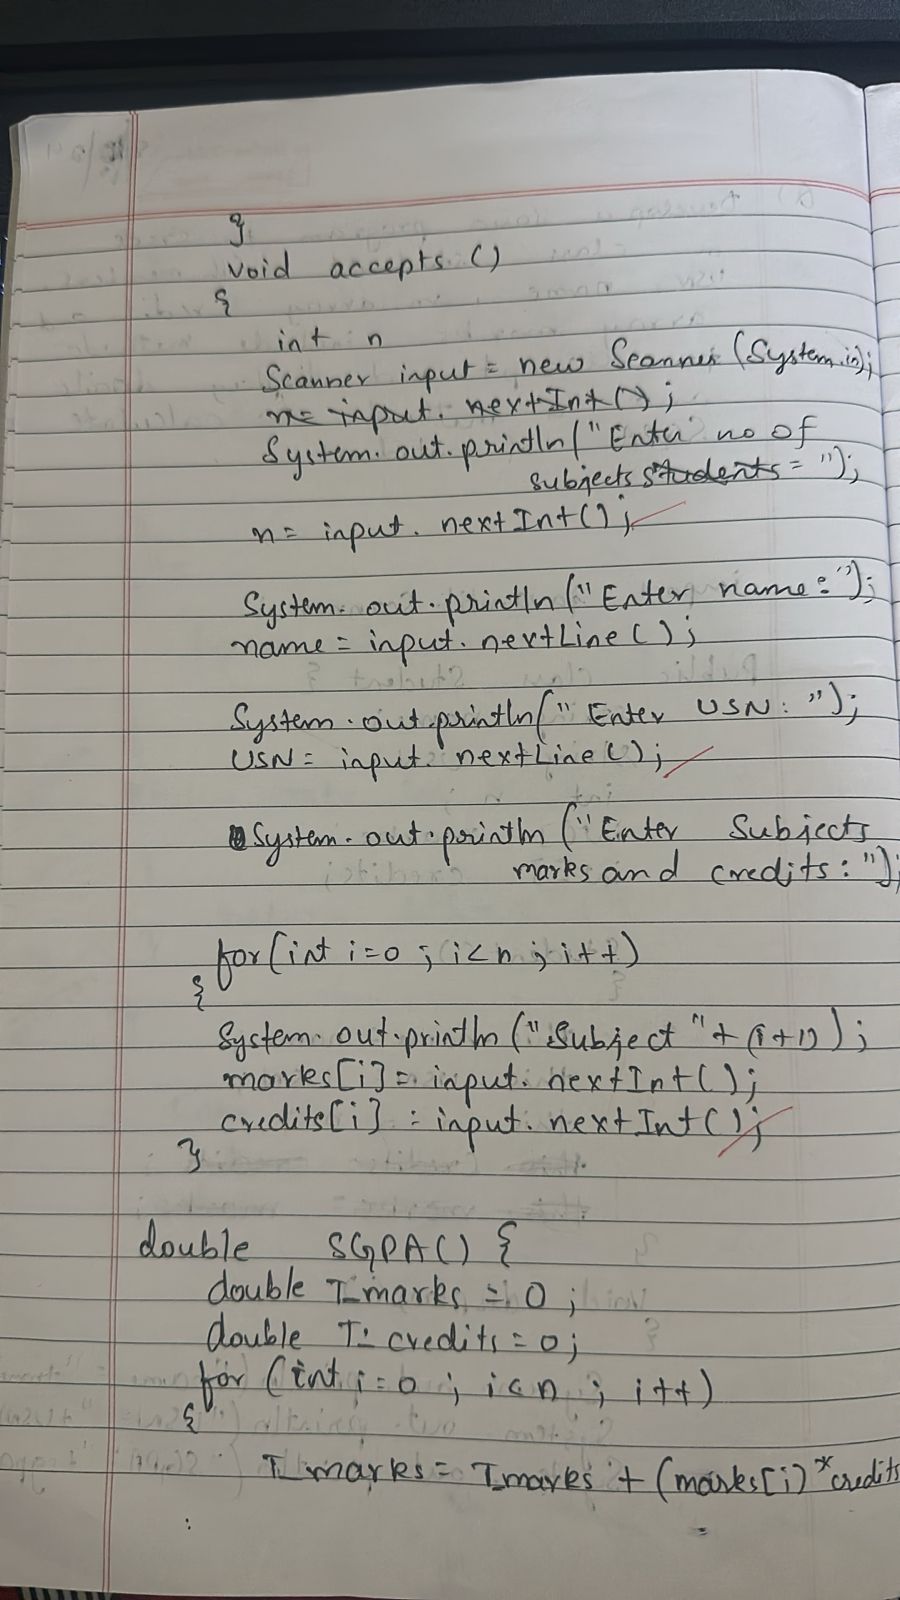 }
void accepts ()
{
int n
Scanner input = new Scanner (System.in);
n= input. nextInt();
System. out. println("Enter no of
subjects students = ");
n= input. nextInt();
System. out. println("Enter name:");
name = input. nextLine();
System. out. println(" Enter USN: ");
USN = input. nextLine();
System. out. println ("Enter Subjects
marks and credits: ");
for(int i=0 ; i<n ; i++)
{
System. out. println ("Subject " + (i+1));
marks[i] = input. nextInt();
credits[i] = input. nextInt();
}
double SGPA() {
double T_marks = 0 ;
double T_credits = 0;
for (int i=0 ; i<n ; i++)
{
T_marks = T_marks + (marks[i)*credits